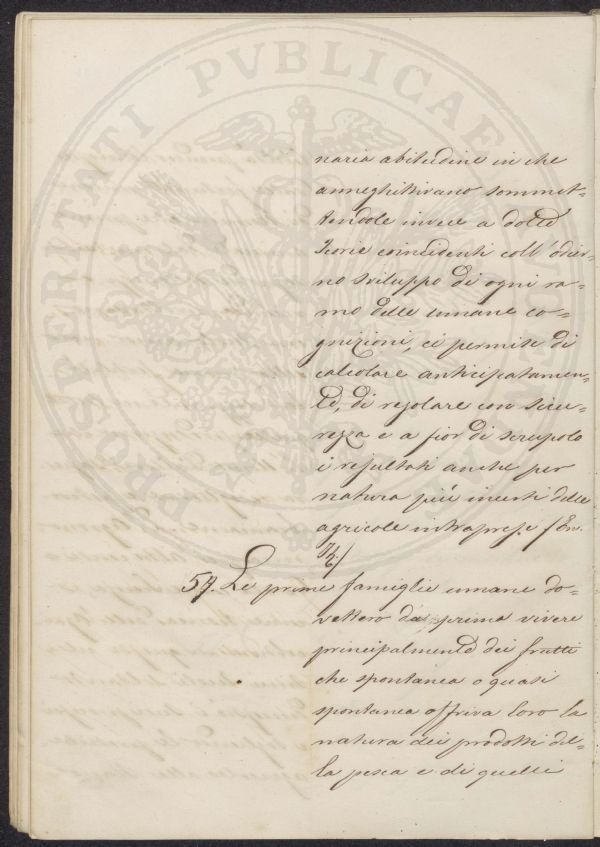 naria abitudine in che
anneghittivano sommet=
tendole invece a dotte
Teorie coincidenti coll'odier=
no sviluppo di ogni ra=
mo delle umane co=
gnizioni, ci permise di
calcolare anticipatamen=
te, di regolare con sicu=
rezza e a fior di scrupolo
i resultati anche per
natura più incerti delle
agricole intraprese (En.
54. Le prime famiglie umane do=
vettero da prima vivere
principalmente dei frutti
che spontanea o quasi
spontanea offriva loro la
natura dei prodotti del=
la pesca e di quelli
PROSPERITATI PVBLICAE